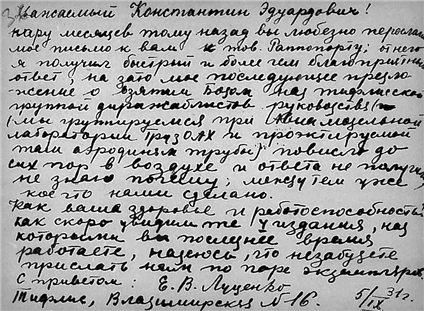 Уважаемый Константин Эдуардович!
пару месяцев тому назад вы любезно переслали
мое письмо к вам к тов. Раппопорту; от него
я получил быстрый и более чем благоприятный
ответ на зато мое последующее предло-
жение о взятии Вами над тифлисской
группой дирижаблистов руководства
(мы группируемся при Авиамодельной
лаборатории ГрузОАХ и проектируемой
там аэродинам трубы) повисло до
сих пор в воздухе и ответа не получил
не знаю почему; между тем уже
кое что нами сделано.
Как ваша здоровье и работоспособность
как скоро увидим те издания, над
которыми вы последнее время
работаете, надеюсь, что незабудете
прислать нам по паре экземпляров.
С приветом: Е. В. Луценко
Тифлис, Владимирская N 16. 5/IX 31 г.